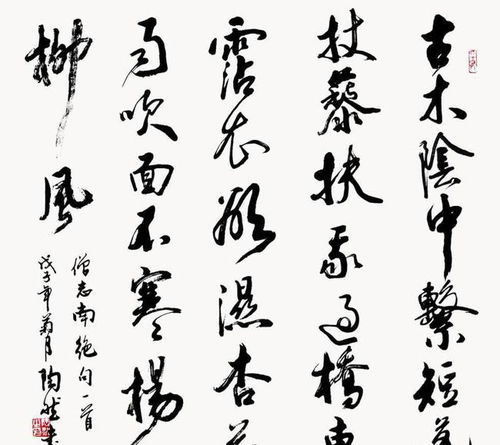 古木陰中繫短
杖藜扶我過橋
霑衣欲濕杏
雨吹面不寒楊
柳風
僧志南絕句一首
戊子年菊月陶然